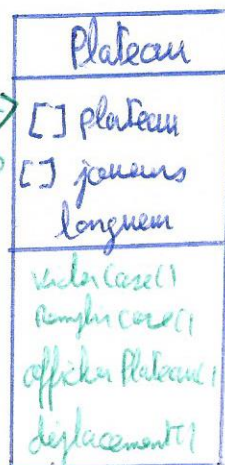 Plateau
[] plateau
[] joueurs
longueur
viderCase()
remplirCase()
afficherPlateau()
déplacement()